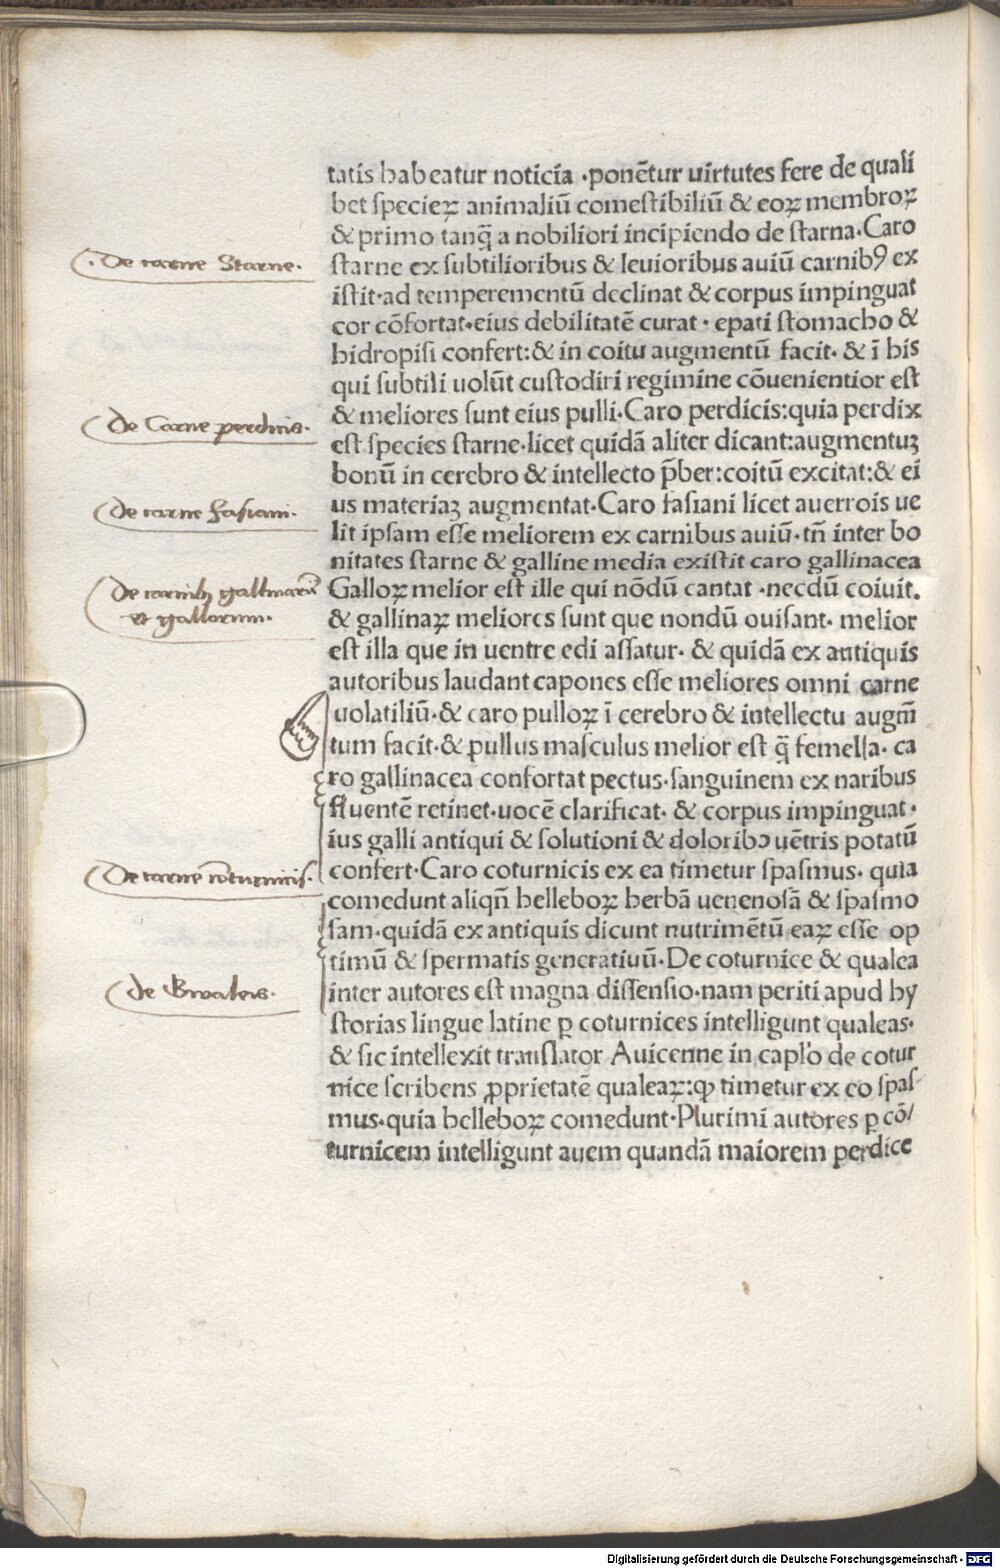 tatis habeatur noticia ·ponētur uirtutes fere de quali
bet specieꝝ animaliū comestibiliū & eoꝝ membroꝝ
& primo tanq̄ a nobiliori incipiendo de starna·Caro
· De carne Starne ·
starne ex subtilioribus & leuioribus auiū carnibꝯ ex
istit·ad temperementū declinat & corpus impinguat
cor cōfortat·eius debilitatē curat· epati stomacho &
hidropisi confert:& in coitu augmentū facit· & ī his
qui subtili uolūt custodiri regimine cōuenientior est
& meliores sunt eius pulli·Caro perdicis:quia perdix
de Carne perdicis·
est species starne·licet quidā aliter dicant:augmentuꝫ
bonū in cerebro & intellecto p̄ber:coitū excitat:& ei
us materiaꝫ augmentat·Caro fasiani licet auerrois ue
de carne fasiani·
lit ipsam esse meliorem ex carnibus auiū·tn̄ inter bo
nitates starne & galline media existit caro gallinacea
Galloꝝ melior est ille qui nōdū cantat ·necdū coiuit.
de carnibꝫ gallinarū
et gallorum·
& gallinaꝝ meliores sunt que nondū ouisant· melior
est illa que in uentre edi assatur· & quidā ex antiquis
autoribus laudant capones esse meliores omni carne
uolatiliū·& caro pulloꝝ ī cerebro & intellectu augm̄
tum facit·& pullus masculus melior est q̄ femella· ca
ro gallinacea confortat pectus·sanguinem ex naribus
fluentē retinet·uocē clarificat· & corpus impinguat·
ius galli antiqui & solutioni & doloribꝯ uētris potatū
confert·Caro coturnicis ex ea timetur spasmus· quia
De carne coturnicis·
comedunt aliqn̄ helleboꝝ herbā uenenosā & spasmo
sam·quidā ex antiquis dicunt nutrimētū eaꝝ esse op
timū & spermatis generatiuū·De coturnice & qualea
de Gwaleis·
inter autores est magna dissensio·nam periti apud hy
storias lingue latine ꝑ coturnices intelligunt qualeas·
& sic intellexit translator Auicenne in caplo de cotur
nice scribens ꝓprietatē qualeaꝝ:ꝙ timetur ex eo spas
mus·quia helleboꝝ comedunt·Plurimi autores ꝑ cō/
turnicem intelligunt auem quandā maiorem perdice
Digitalisierung gefördert durch die Deutsche Forschungsgemeinschaft - DFG